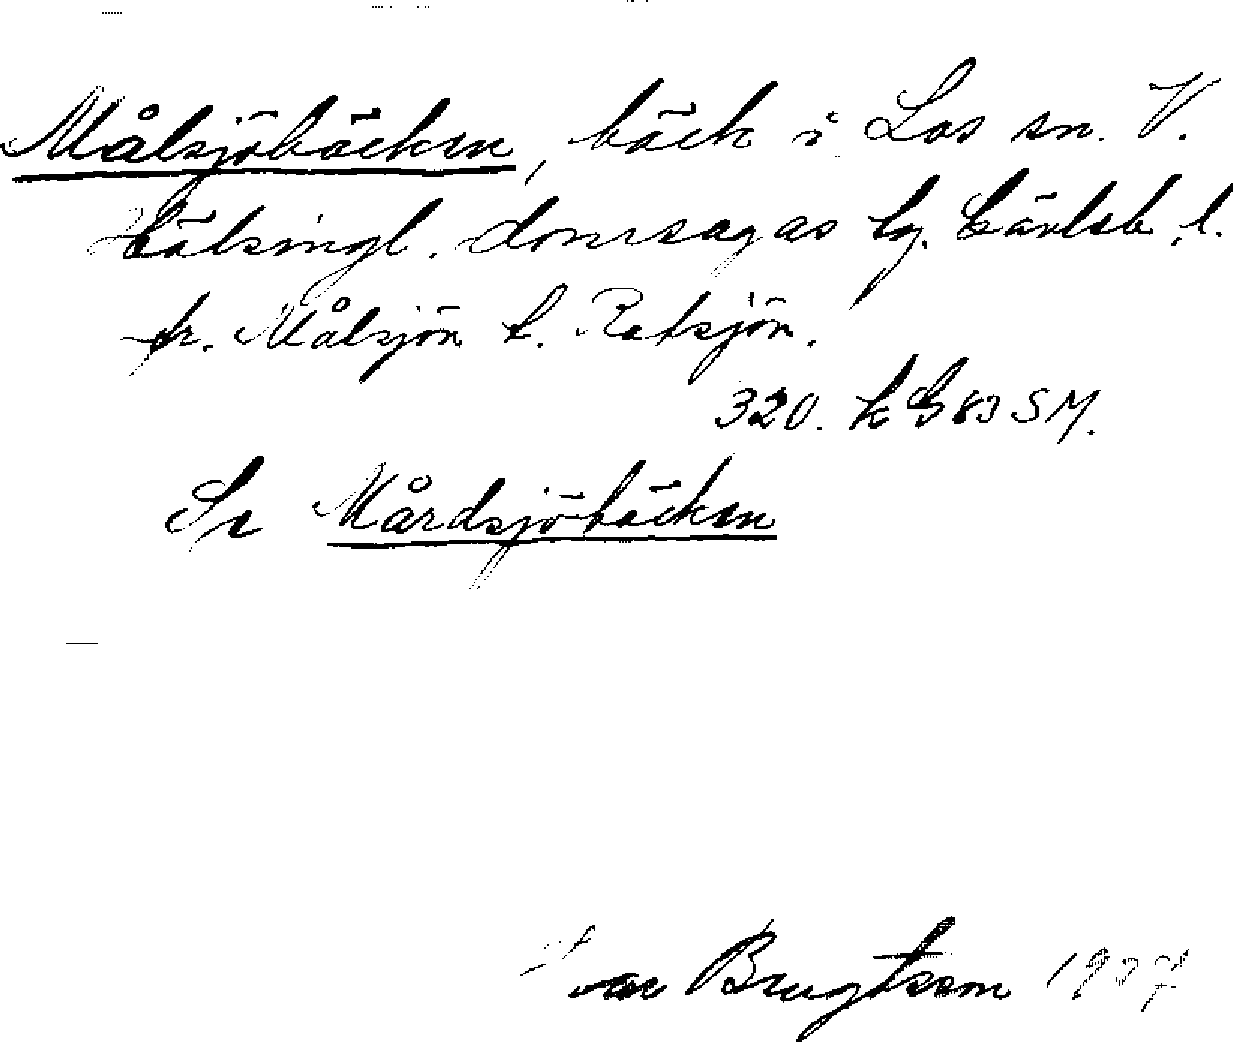 Målsjöbäcken, bäck i Los sn. V.
Hälsingl. domsagas tg. Gävleb. l.
fr. Målsjön t. Rotsjön.
320. SM.
Se Mårdsjöbäcken
Ivar Bengtsson 1937